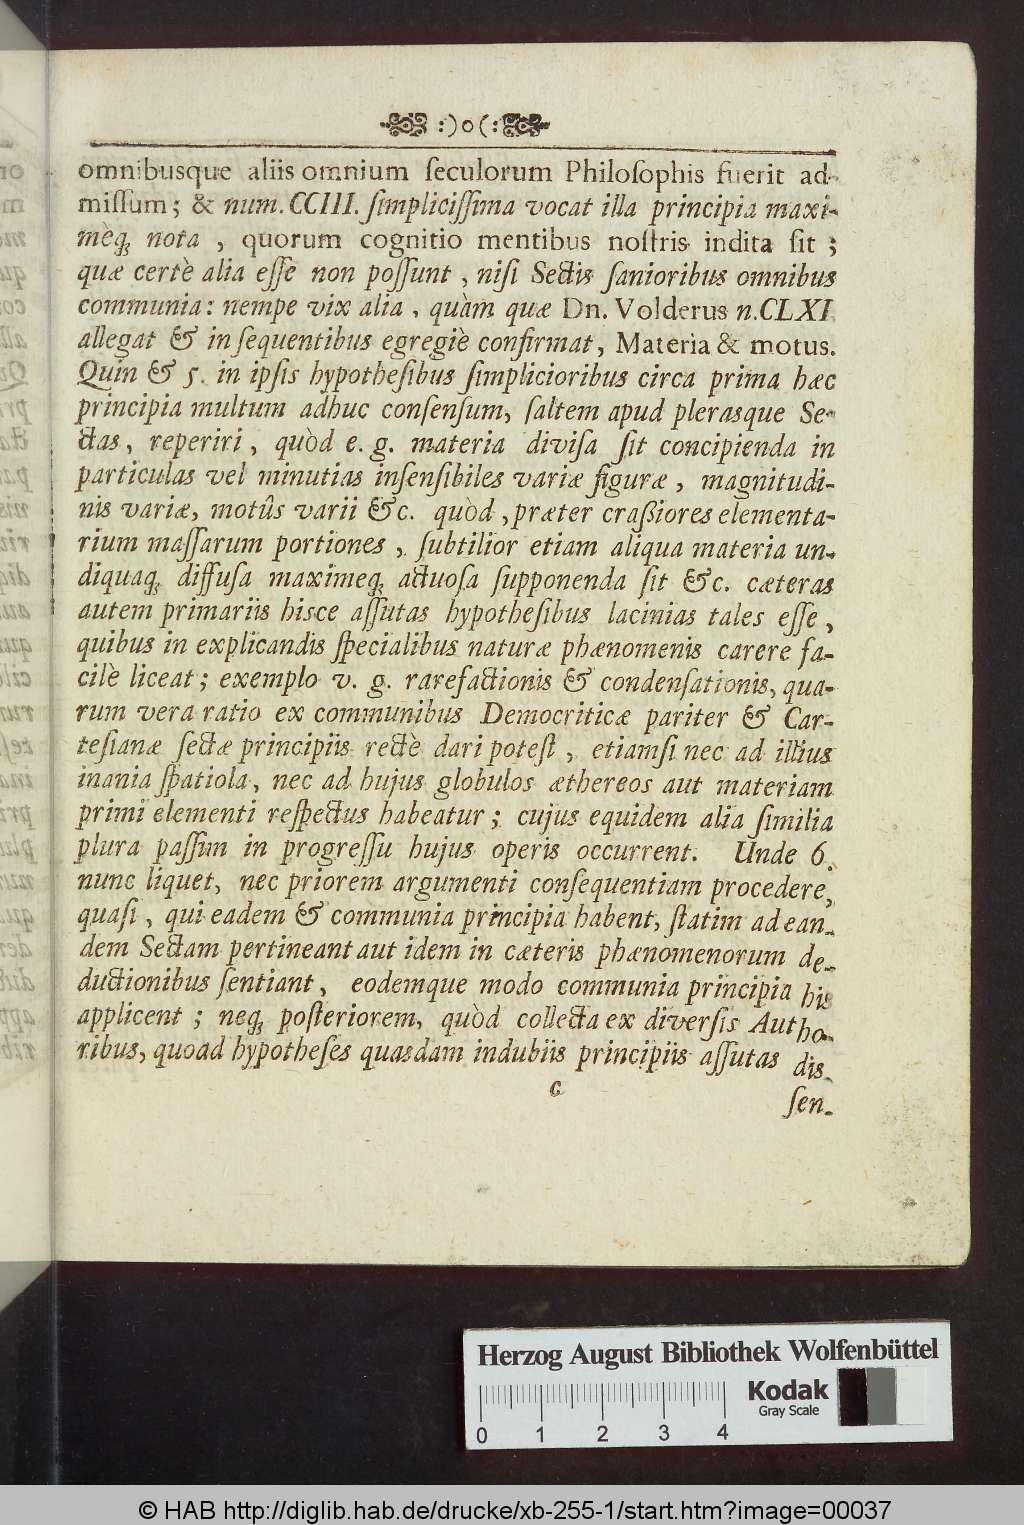 :)o(:
omnibusque aliis omnium ſeculorum Philoſophis fuerit ad-
miſſum; & num. CCIII. ſimpliciſſima vocat illa principia maxi-
mèq; nota , quorum cognitio mentibus noſtris indita ſit ;
quæ certè alia eſſe non poſſunt , niſi Sectis ſanioribus omnibus
communia: nempe vix alia , quàm quæ Dn. Volderus n. CLXI
allegat & in ſequentibus egregiè confirmat, Materia & motus.
Quin & 5. in ipſis hypotheſibus ſimplicioribus circa prima hæc
principia multum adhuc conſenſum, ſaltem apud plerasque Se-
ctas, reperiri, quòd e. g. materia diviſa ſit concipienda in
particulas vel minutias inſenſibiles variæ figuræ, magnitudi-
nis variæ, motûs varii &c. quòd, præter craßiores elementa-
rium maſſarum portiones, ſubtilior etiam aliqua materia un-
diquaq; diffuſa maximeq; actuoſa ſupponenda ſit &c. cæteras
autem primariis hisce aſſutas hypotheſibus lacinias tales eſſe,
quibus in explicandis ſpecialibus naturæ phænomenis carere fa-
cilè liceat; exemplo v. g. rarefactionis & condenſationis, qua-
rum vera ratio ex communibus Democriticæ pariter & Car-
teſianæ ſectæ principiis rectè dari poteſt, etiamſi nec ad illius
inania ſpatiola, nec ad hujus globulos æthereos aut materiam
primi elementi reſpectus habeatur; cujus equidem alia ſimilia
plura paſſim in progreſſu hujus operis occurrent. Unde 6.
nunc liquet, nec priorem argumenti conſequentiam procedere,
quaſi, qui eadem & communia principia habent, ſtatim ad ean-
dem Sectam pertineant aut idem in cæteris phænomenorum de-
ductionibus ſentiant, eodemque modo communia principia his
applicent; neq; poſteriorem, quòd collecta ex diverſis Autho-
ribus, quoad hypotheſes quasdam indubiis principiis aſſutas dis-
c
ſen-
Herzog August Bibliothek Wolfenbüttel
Kodak
Gray Scale
0 1 2 3 4
© HAB http://diglib.hab.de/drucke/xb-255-1/start.htm?image=00037